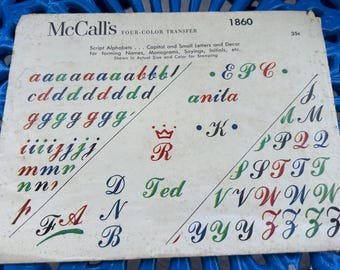 McCall's FOUR-COLOR TRANSFER 1860
Script Alphabets . . . Capital and Small Letters and Decor 35c
for forming Names, Monograms, Sayings, Initials, etc.
Shown in Actual Size and Color for Stamping
aaaaaaabbbl
cdddddddd
ggggggg
iiijjjj
mmm
nnn
p
• E P C •
anita
• K •
R
Ted
D
N
B
F A
J
M
P P Q Q
S S T T T
V V W W W
Y Y Y Z Z Z Z